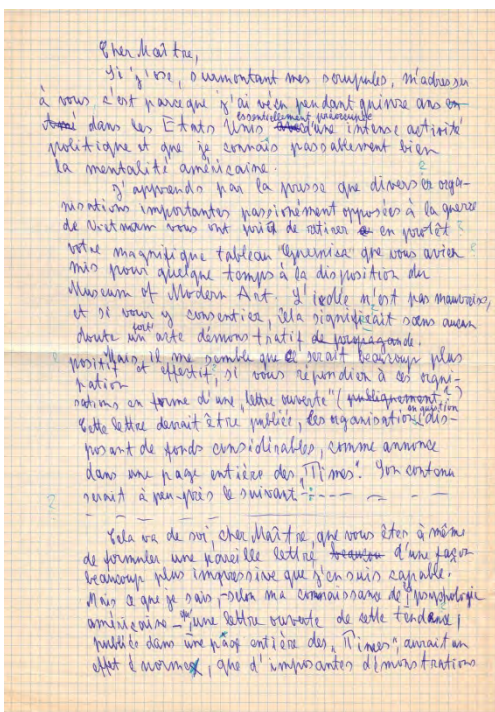 Cher Maître,
Si j'ose, surmontant mes scrupules, m'adresser
à vous c'est parceque j'ai vécu pendant quinze ans en
essentiellement préoccupé
dans les Etats Unis d'une intense activité
politique et que je connais passablement bien
la mentalité américaine.
J'apprends par la presse que diverses orga-
nisations importantes passionément opposées à la guerre
de Vietnam vous ont prié de retirer en protêt
votre magnifique tableau que vous aviez
mis pour quelque temps à la disposition du
Museum of Modern Art. L'idée n'est pas mauvaise,
et si vous y consentiez, cela signifierait sans aucun
doute un acte démonstratif de propagande.
Mais il me semble que ce serait beaucoup plus
positif et effectif, si vous répondiez à ces orgni-
sations en forme d'une "lettre ouverte" (publiquement?)
Cette lettre devrait être publiée, les organisations en question dis-
posant de fonds considérables, comme annonce
dans une page entière des "Times". Son contenu
serait à peu-près le suivant:
Cela va de soi, cher Maître, que vous êtes à même
de formuler une pareille lettre d'une façon
beaucoup plus impressive que j'en suis capable.
Mais ce que je sais, selon ma connaissance de psychologie
américaine, "une lettre ouverte de cette tendance,
publiée dans une page entière des "Times", aurait un
effet énorme, que d'imposantes démonstrations